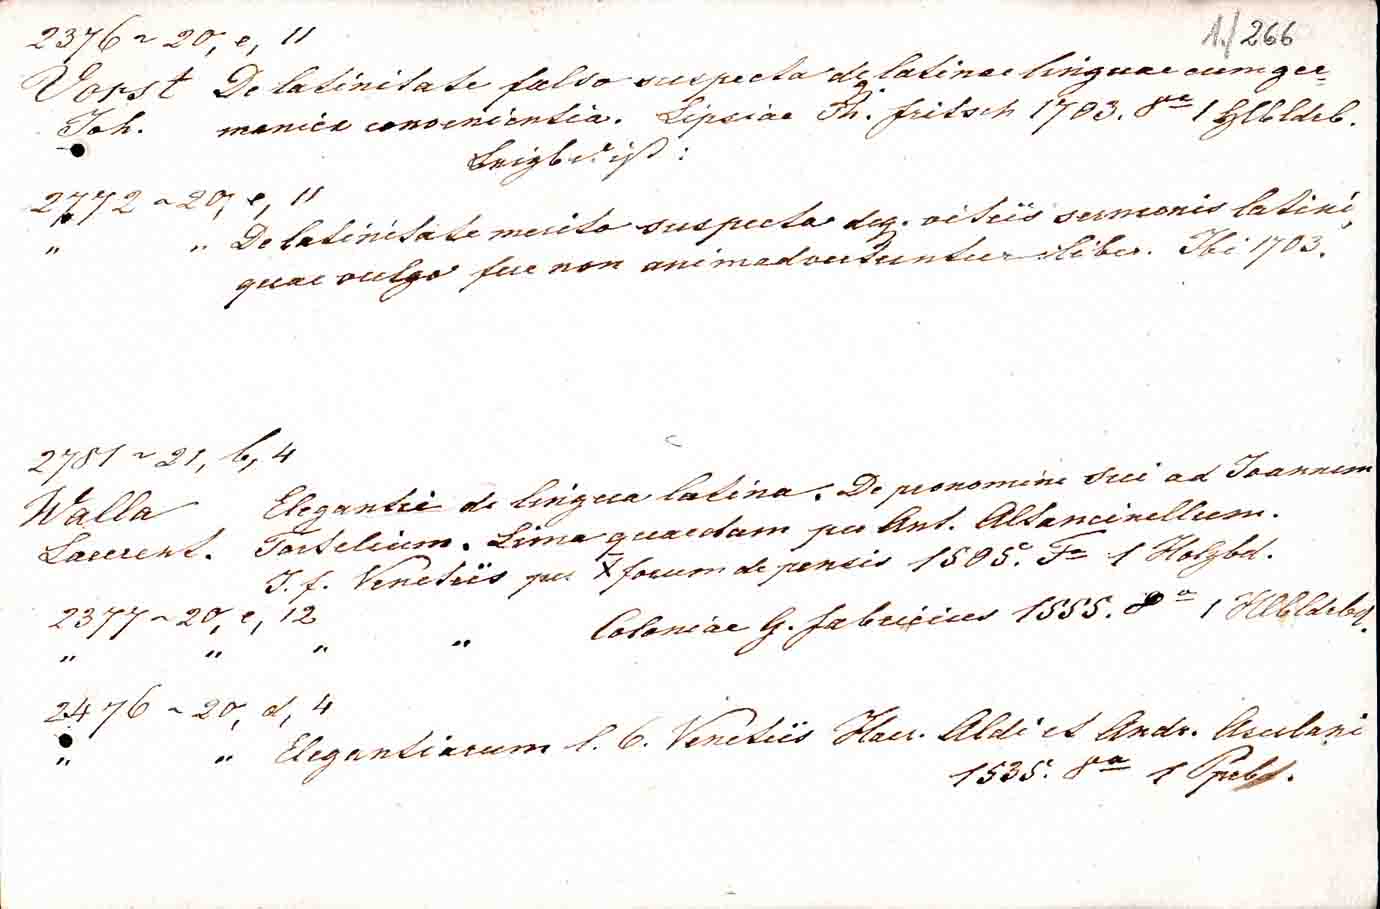 1./266
2376 ~ 20, e, 11
Vorst De latinitate falso suspecta deq. latinae linguae cum ger=
Joh. manica convenientia. Lipsiae Th. fritsch 1703. 8va 1 Hlbldrb.
2772 ~ 20, e, 11
" " De latinitate merito suspecta deq. vitiis sermonis latini,
quae vulgo fere non animadvertuntur liber. Ibi 1703.
2781 ~ 21, b, 4
Walla Elegantie de lingua latina. De pronomine sui ad Joannem
Laurent. Tortelium. Lima quaedam per Ant. Altancinellum.
I. f. Venetiis per forum de pensis 1505. Fo 1 Holzbd.
2377 ~ 20, e, 12
" " " " Coloniae G. fabricius 1555. 8va 1 Hlbldrbd.
2476 ~ 20, d, 4
" " Elegantiarum l. 6. Venetiis Haer. Aldi et Andr. Asulani
1535. 8va 1 Ppbd.